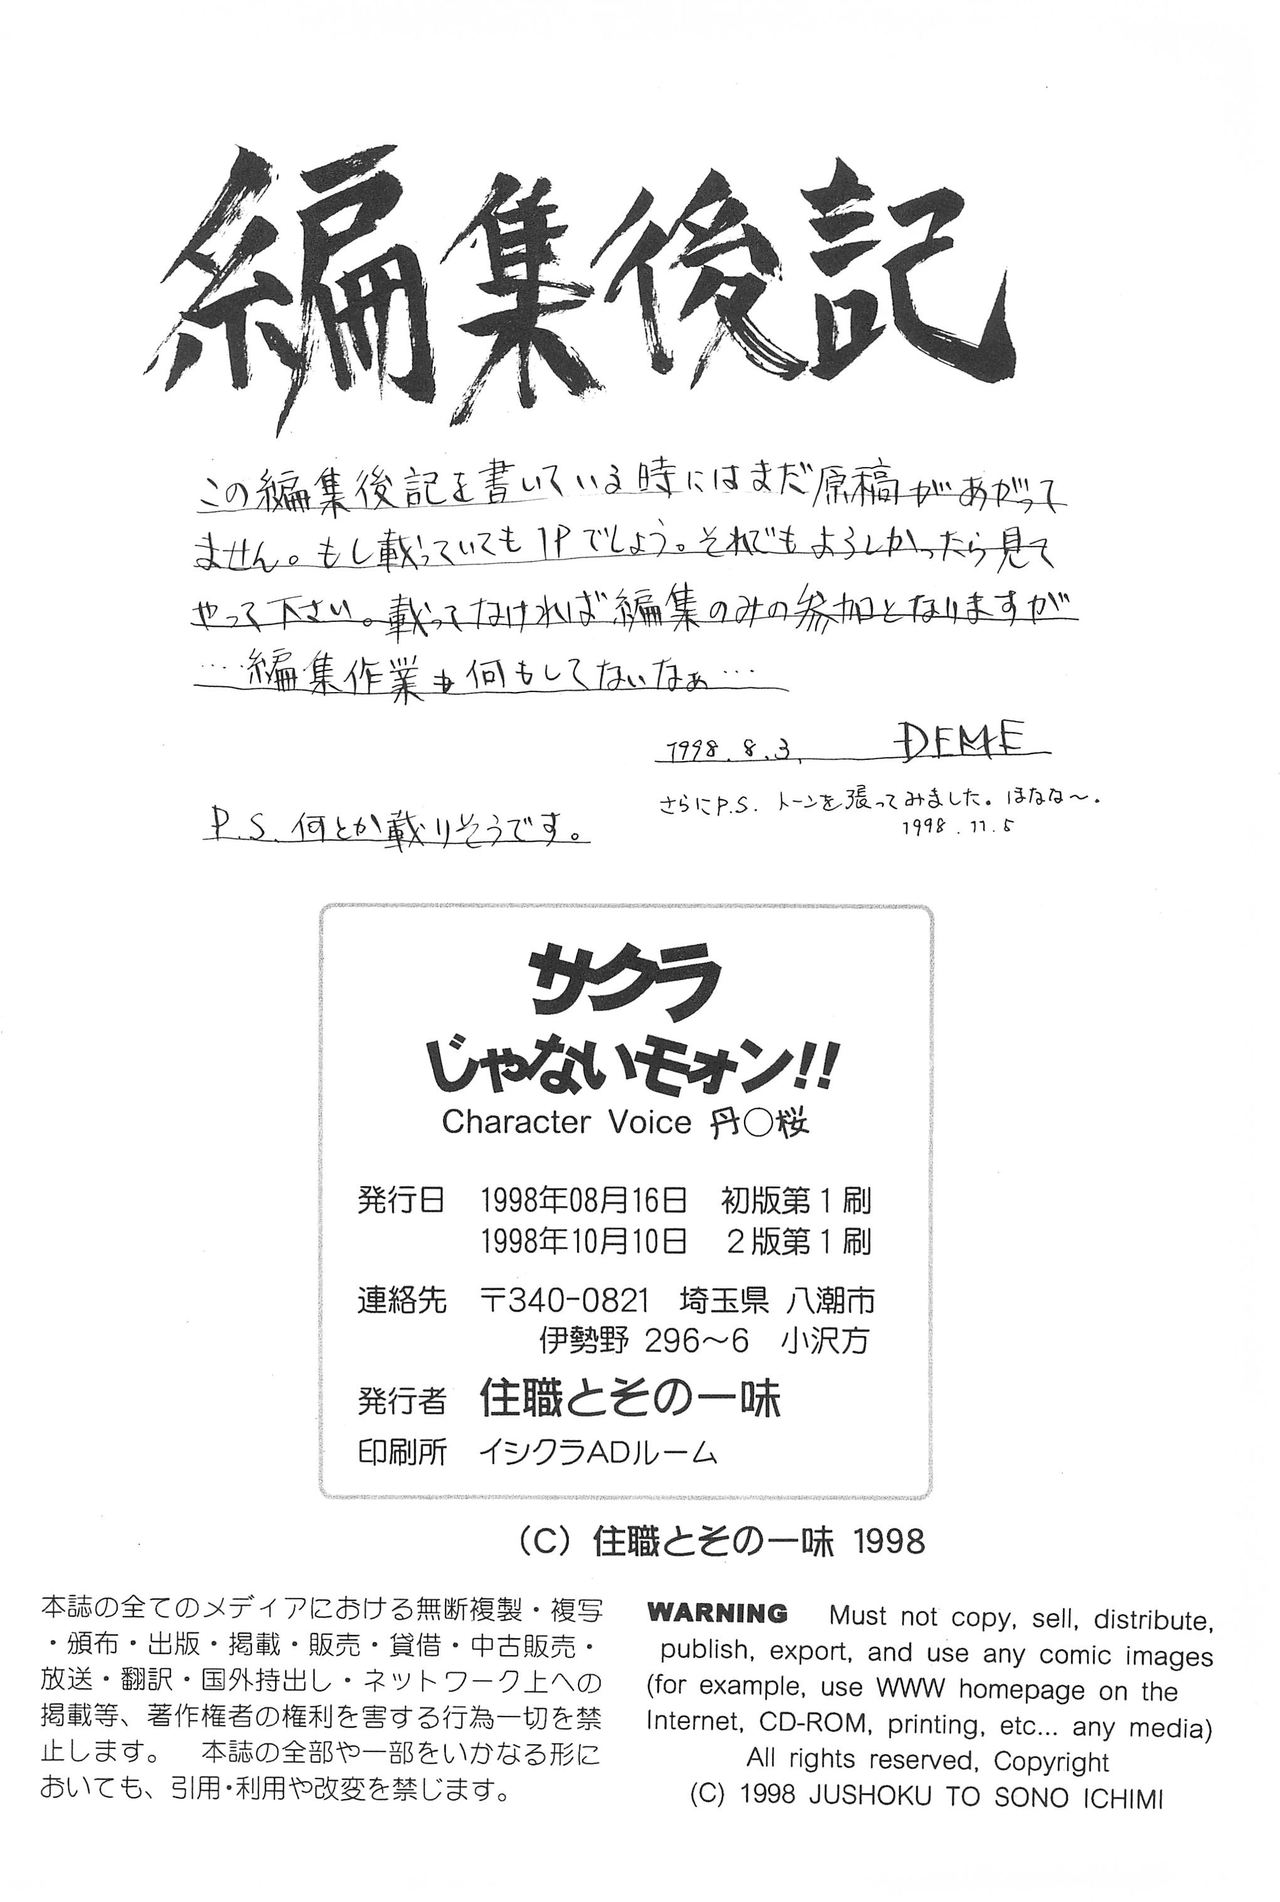 編集後記
この編集後記を書いている時にはまだ原稿があがって
ません。もし載っていても1Pでしょう。それでもよろしかったら見て
やって下さい。載ってなければ編集のみの参加となりますが
…編集作業も何もしてないなぁ…
1998.8.3. DEME
P.S. 何とか載りそうです。
さらにP.S. トーンを張ってみました。ほなな〜.
1998.11.5
サクラ
じゃないモォン!!
Character Voice 丹○桜
発行日 1998年08月16日 初版第1刷
1998年10月10日 2版第1刷
連絡先 〒340-0821 埼玉県 八潮市
伊勢野 296〜6 小沢方
発行者 住職とその一味
印刷所 イシクラADルーム
(C) 住職とその一味 1998
本誌の全てのメディアにおける無断複製・複写
・頒布・出版・掲載・販売・貸借・中古販売・
放送・翻訳・国外持出し・ネットワーク上への
掲載等、著作権者の権利を害する行為一切を禁
止します。 本誌の全部や一部をいかなる形に
おいても、引用・利用や改変を禁じます。
WARNING Must not copy, sell, distribute,
publish, export, and use any comic images
(for example, use WWW homepage on the
Internet, CD-ROM, printing, etc... any media)
All rights reserved, Copyright
(C) 1998 JUSHOKU TO SONO ICHIMI